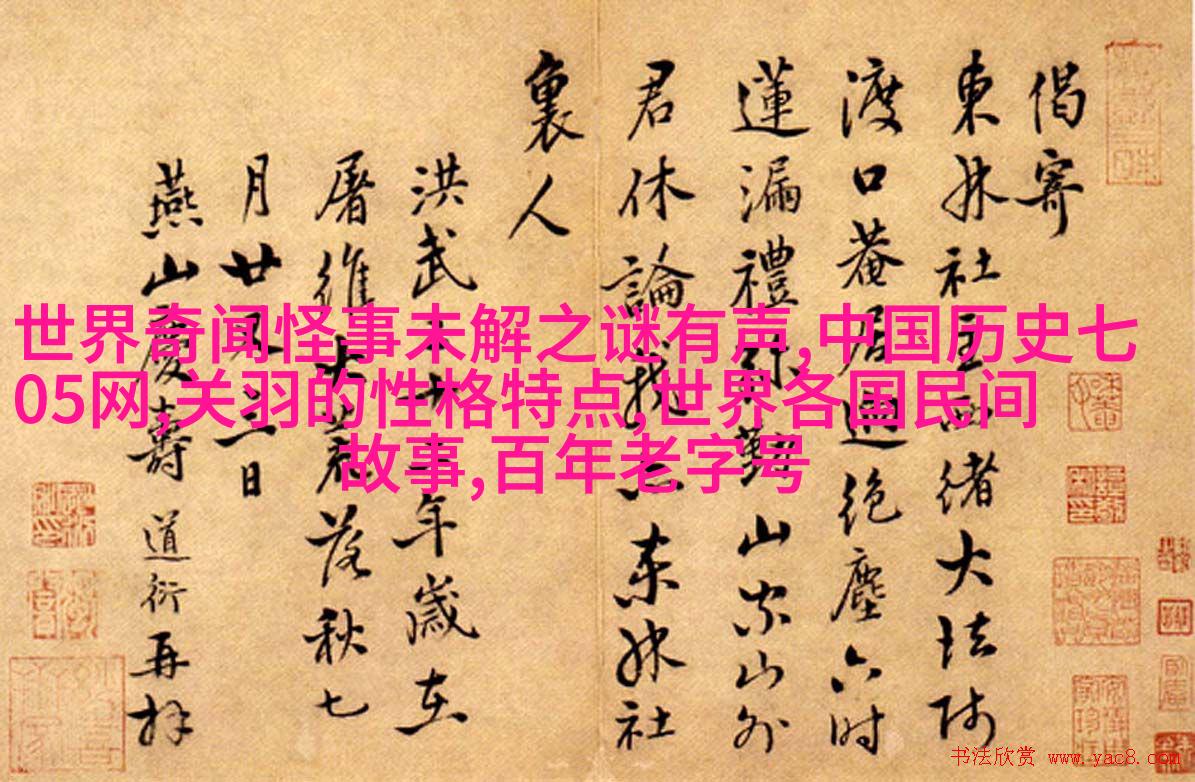 偈寄
東林社主西緒大法師
渡口菴居迥絕塵六時
蓮漏禮弥勤山家山外
君休論我亦東林社
裏人
洪武年歲在
屠維大荒落秋七
月廿二日
燕山慶壽道衍再拜
世界奇闻怪事未解之谜有声,中国历史七
05网,关羽的性格特点,世界各国民间
故事,百年老字号
书法欣赏 www.yac8.com